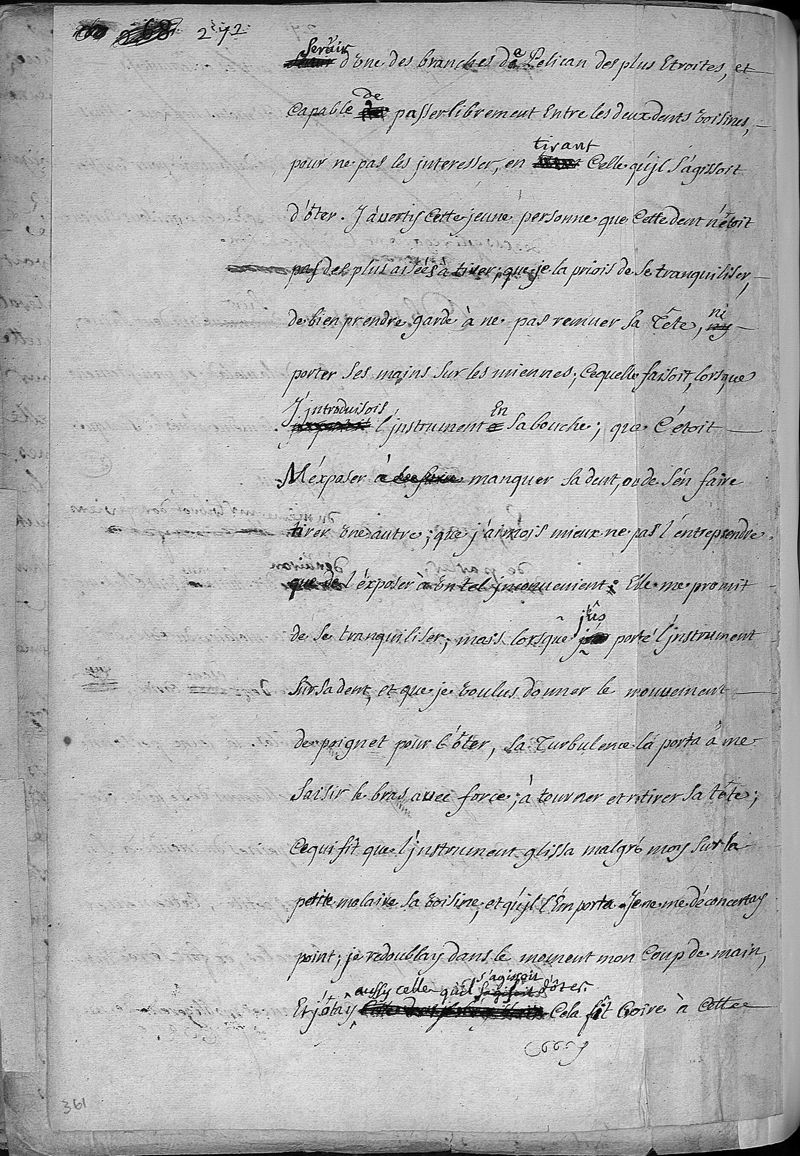 272
servir d'une des branches de Pelican des plus Etroites, et
Capable de passer librement Entre les deux dents voisines,
pour ne pas les jnteresser, en tirant Celle qu'jl s'agissoit
d'ôter. J'avertis Cette jeune personne que Cette dent n'étoit
pas des plus aisées à tirer; que je la priois de se tranquiliser,
de bien prendre garde à ne pas remuer sa Tête, ni
porter ses mains sur les miennes; Cequelle faisoit, lorsque
J'jntroduisois l'jnstrument En sa bouche; que C'étoit
M'éxposer à manquer sa dent, ou de s'én faire
tirer une autre; que j'aimois mieux ne pas l'entreprendre
que de l'éxposer à un tel jnconvenient: Elle me promit
de se tranquiliser; mais lorsque j'eûs porté l'jnstrument
sur sa dent, et que je voulus donner le mouvement
de poignet pour l'ôter, sa Turbulence la porta à me
saisir le bras avec force; à tourner et retirer sa tête;
Cequi fit que l'jnstrument glissa malgré moy sur la
petite molaire sa voisine, et qu'jl l'Emporta. Je ne me déconcertay
point; je redoublay dans le moment mon Coup de main,
Et j'ôtay aussy celle qu'il s'agissoit d'ôter. Cela fit Croire à Cette
361